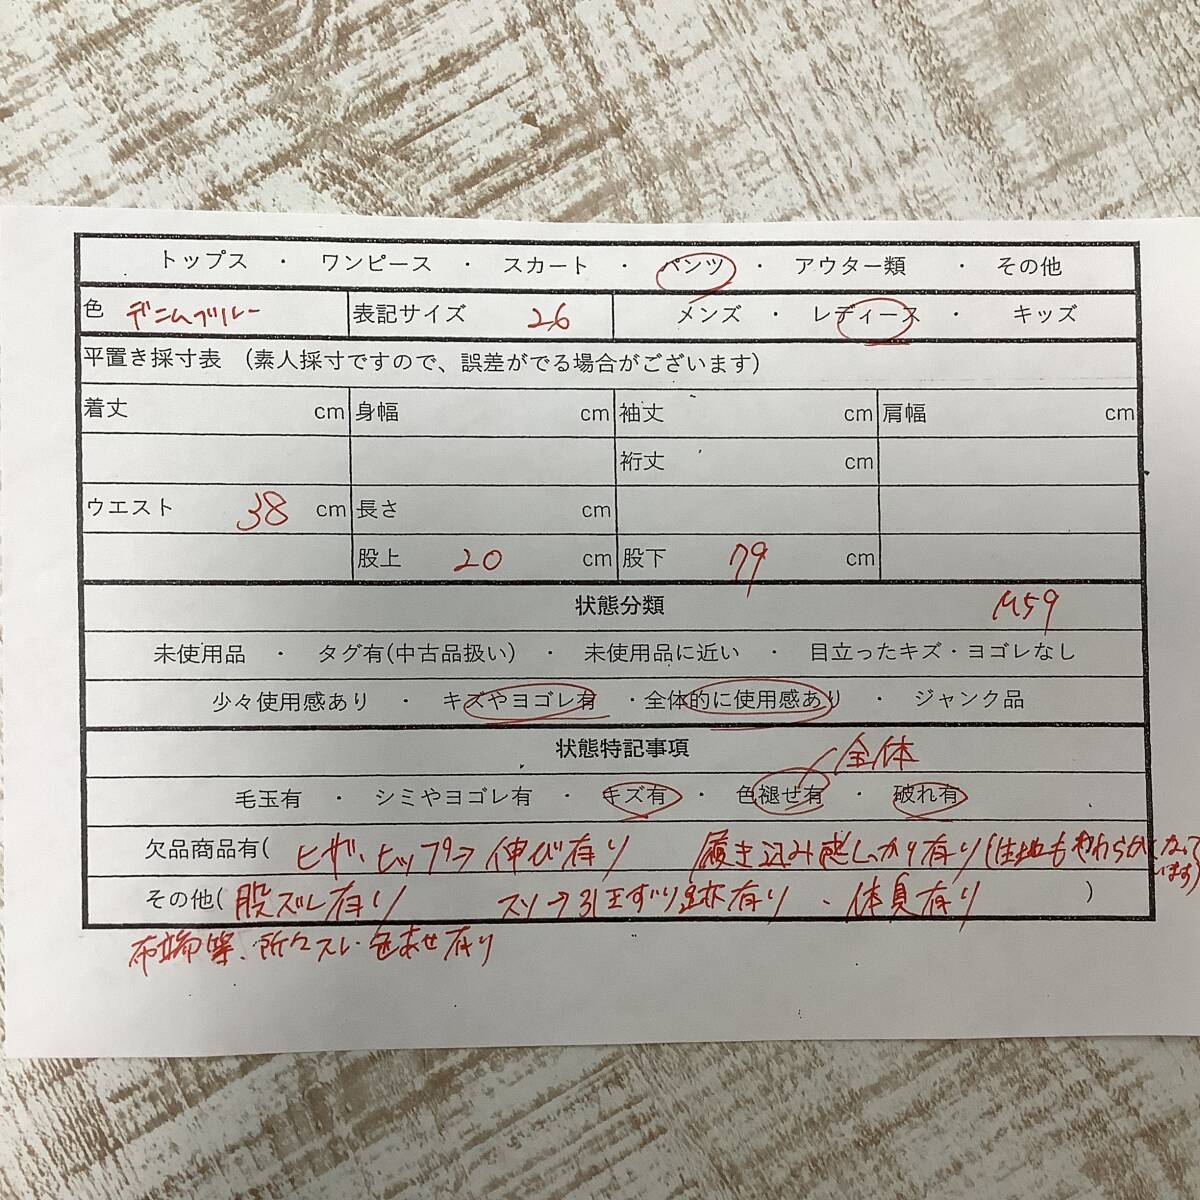 トップス ・ ワンピース ・ スカート ・ パンツ ・ アウター類 ・ その他
色 デニムブルー 表記サイズ 26 メンズ ・ レディース ・ キッズ
平置き採寸表 (素人採寸ですので、誤差がでる場合がございます)
着丈 cm 身幅 cm 袖丈 cm 肩幅 cm
裄丈 cm
ウエスト 38 cm 長さ cm
股上 20 cm 股下 79 cm
状態分類 M59
未使用品 ・ タグ有(中古品扱い) ・ 未使用品に近い ・ 目立ったキズ・ヨゴレなし
少々使用感あり ・ キズやヨゴレ有 ・ 全体的に使用感あり ・ ジャンク品
状態特記事項 全体
毛玉有 ・ シミやヨゴレ有 ・ キズ有 ・ 色褪せ有 ・ 破れ有
欠品商品有( ヒザ、ヒップ→伸び有り 履き込み感しっかり有り(生地もやわらかくなって
います)
その他( 股ズレ有り スソ→引きずり跡有り ・ 体臭有り )
布端等、所々スレ・色あせ有り